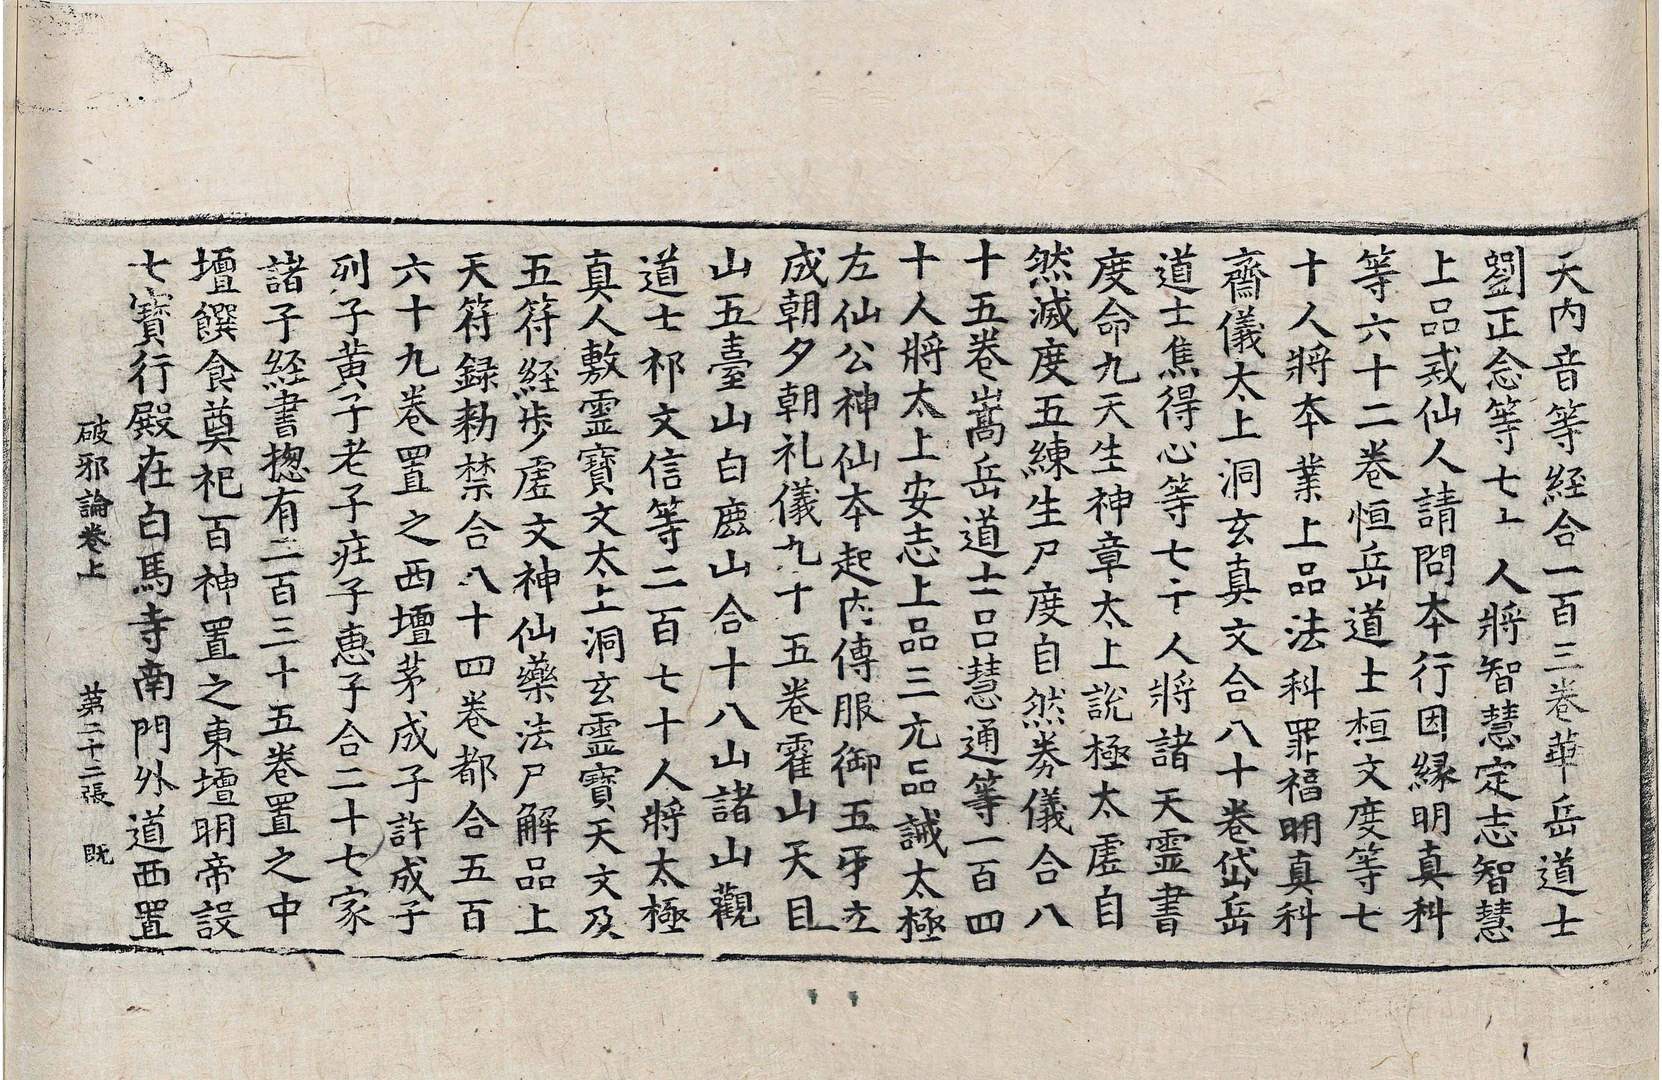 天内音等経合一百三卷華岳道士
劉正念等七十人將智慧定志智慧
上品戒仙人請問本行因縁明真科
等六十二卷恒岳道士桓文度等七
十人將本業上品法科罪福明真科
齋儀太上洞玄真文合八十卷岱岳
道士焦得心等七十人將諸天霊書
度命九天生神章太上說極太虛自
然滅度五練生尸度自然劵儀合八
十五卷嵩岳道士吕慧通等一百四
十人將太上安志上品三元品誡太極
左仙公神仙本起内傳服御五牙立
成朝夕朝礼儀九十五卷霍山天目
山五臺山白鹿山合十八山諸山觀
道士祁文信等二百七十人將太極
真人敷霊寶文太上洞玄霊寶天文及
五符経步虛文神仙藥法尸解品上
天符録勑禁合八十四卷都合五百
六十九卷置之西壇茅成子許成子
列子黄子老子莊子惠子合二十七家
諸子経書揔有二百三十五卷置之中
壇饌食奠祀百神置之東壇明帝設
七寶行殿在白馬寺南門外道西置
破邪論卷上　第二十二張　既